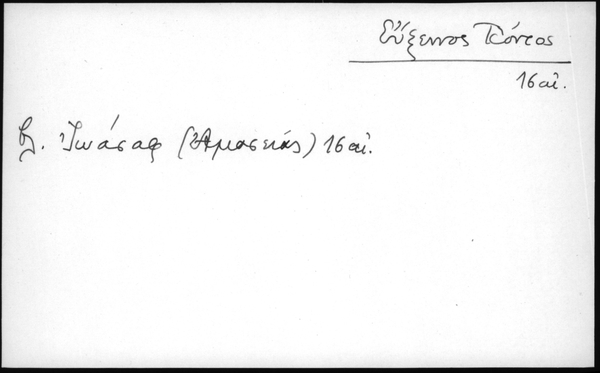 Εὔξεινος Πόντος
16 αἰ.
βλ. Ἰωάσαφ (Ἀμασείας) 16 αἰ.